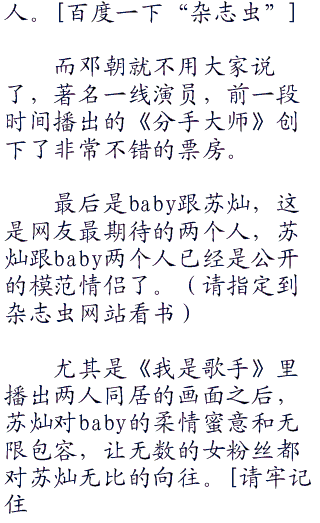 人。[百度一下“杂志虫”]
而邓朝就不用大家说
了，著名一线演员，前一段
时间播出的《分手大师》创
下了非常不错的票房。
最后是baby跟苏灿，这
是网友最期待的两个人，苏
灿跟baby两个人已经是公开
的模范情侣了。（请指定到
杂志虫网站看书）
尤其是《我是歌手》里
播出两人同居的画面之后，
苏灿对baby的柔情蜜意和无
限包容，让无数的女粉丝都
对苏灿无比的向往。[请牢记
住